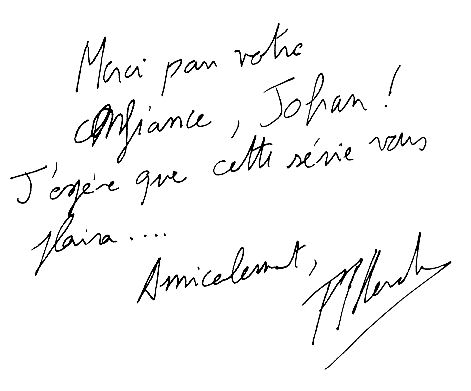 Merci pour votre
confiance, Johan !
J'espère que cette série vous
plaira....
Amicalement,